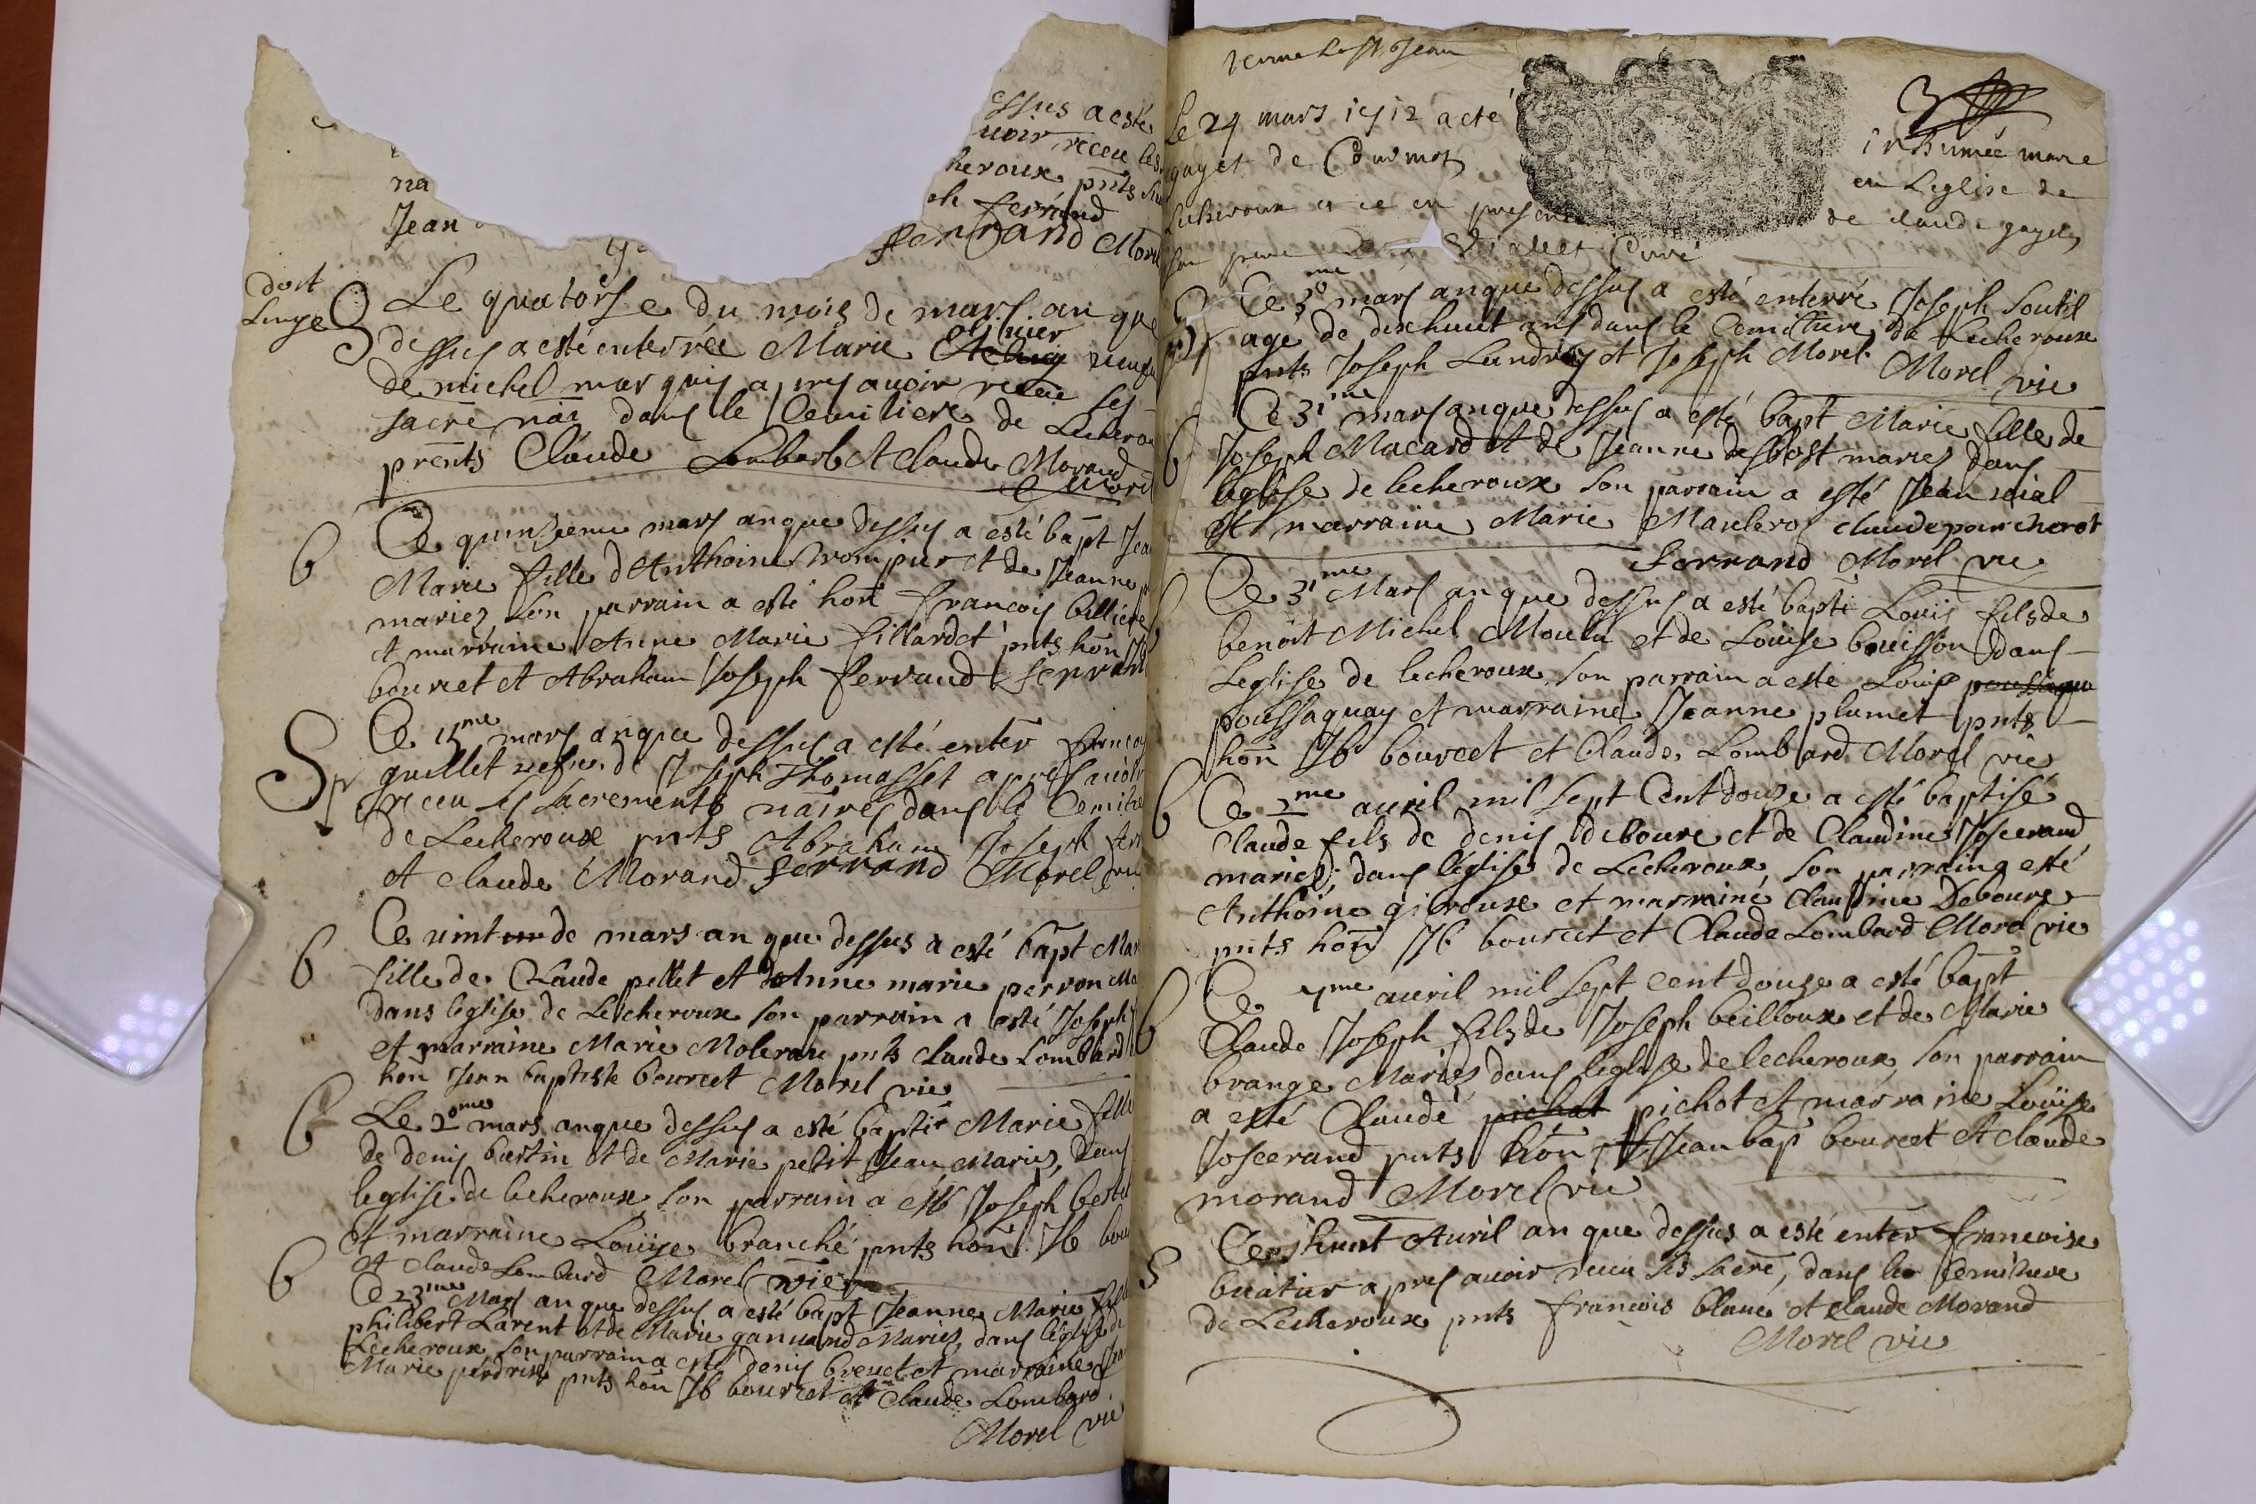 essus a esté
uoir receu les
heroux pnts
ph ferrand
na
Jean
ferrand Morel
doit
Linge
S
Le quatorse du mois de mars an que
dessus a esté enterrée Marie veufve
de michel marquis apres avoir receu ses
sacre nai dans le Cemitiere de Lecherou
prents Claude Lombard et claude Morand
Morel
b
Ce quinzieme mars an que dessus a esté bapt Jea
Marie fille dAnthoine trompier et de Jeanne
mariez son parrain a esté hon françois billiere
et marraine Anne Marie fillardet pnts hon Jb
bourcet et Abraham Joseph ferrand ferrand
Sp
Ce 15me mars an que dessus a esté enter françois
guillet nefveu de Joseph Thomasset apres avoir
receu ses sacrements naires dans le Cemitie
de Lecheroux pnts Abraham Joseph fer
et claude Morand ferrand Morel vic
b
Ce vint de mars an que dessus a esté bapt Mar
fille de Claude pellet et de Anne marie perron Ma
dans leglise de Lecheroux son parrain a esté Joseph
et marraine Marie Moleraz pnts claude Lombard
hon Jean baptiste bourcet Morel vic
b
Le 20me mars an que dessus a esté baptie Marie fille
de denis bertin et de Marie petit Jean Mariez, dans
leglise de lecheroux son parrain a esté Joseph
et marraine Louise branché pnts hon Jb bou
et claude Lombard Morel vic
b
Ce 23me Mars an que dessus a esté bapt Jeanne Marie fille
philibert Larent et de Marie ganuand Mariez, dans leglise de
Lecheroux son parrain a esté denis breuet et marraine
Marie perdrix pnts hon Jb bourcet et Claude Lombard
Morel vic
3
Le 24 mars 1712 a eté inhumée marie
gayet de Curmot en Leglise de
Lecheroux et ce en presence de claude gayet
son pere Curé
Ce 30me mars an que dessus a esté enterré Joseph Soutil
age de dixhuit ans dans le Cemitiere de Lecheroux
pnts Joseph Landrey et Joseph Morel. Morel vic
b
Ce 31me mars an que dessus a esté bapt Marie fille de
Joseph Macard et de Jeanne desbost mariez dans
leglise de lecheroux son parrain a esté Jean vial
et marraine Marie claude pourcherot
ferrand Morel vic
b
Ce 31me Mars an que dessus a esté bapti Louis fils de
benoit Michel Moulin et de Louise bouisson dans
Leglise de lecheroux son parrain a esté Louis
poussaguay et marraine Jeanne plumet pnts
hon Jb bourcet et Claude Lombard Morel vic
b
Ce 2me auril mil sept Cent douze a esté baptisé
Claude fils de denis deboure et de Claudine Joscerand
mariez, dans léglise de Lecheroux, son parrain a esté
Anthoine giroux et marraine Claudine Deboure
pnts hon Jb bourcet et Claude Lombard Morel vic
b
Ce 7me auril mil sept cent douze a esté bapt
Claude Joseph fils de Joseph beilloux et de Marie
brange Mariez dans leglise de lecheroux, son parrain
a esté Claude pichot pichot et marraine Louise
Joscerand pnts hon Jean bap bourcet et claude
morand Morel vic
S
Ce dishuit Auril an que dessus a esté enter francoise
buatier apres avoir receu ses sacre, dans le Cemitiere
de Lecheroux pnts françois blanc et Claude Morand
Morel vic